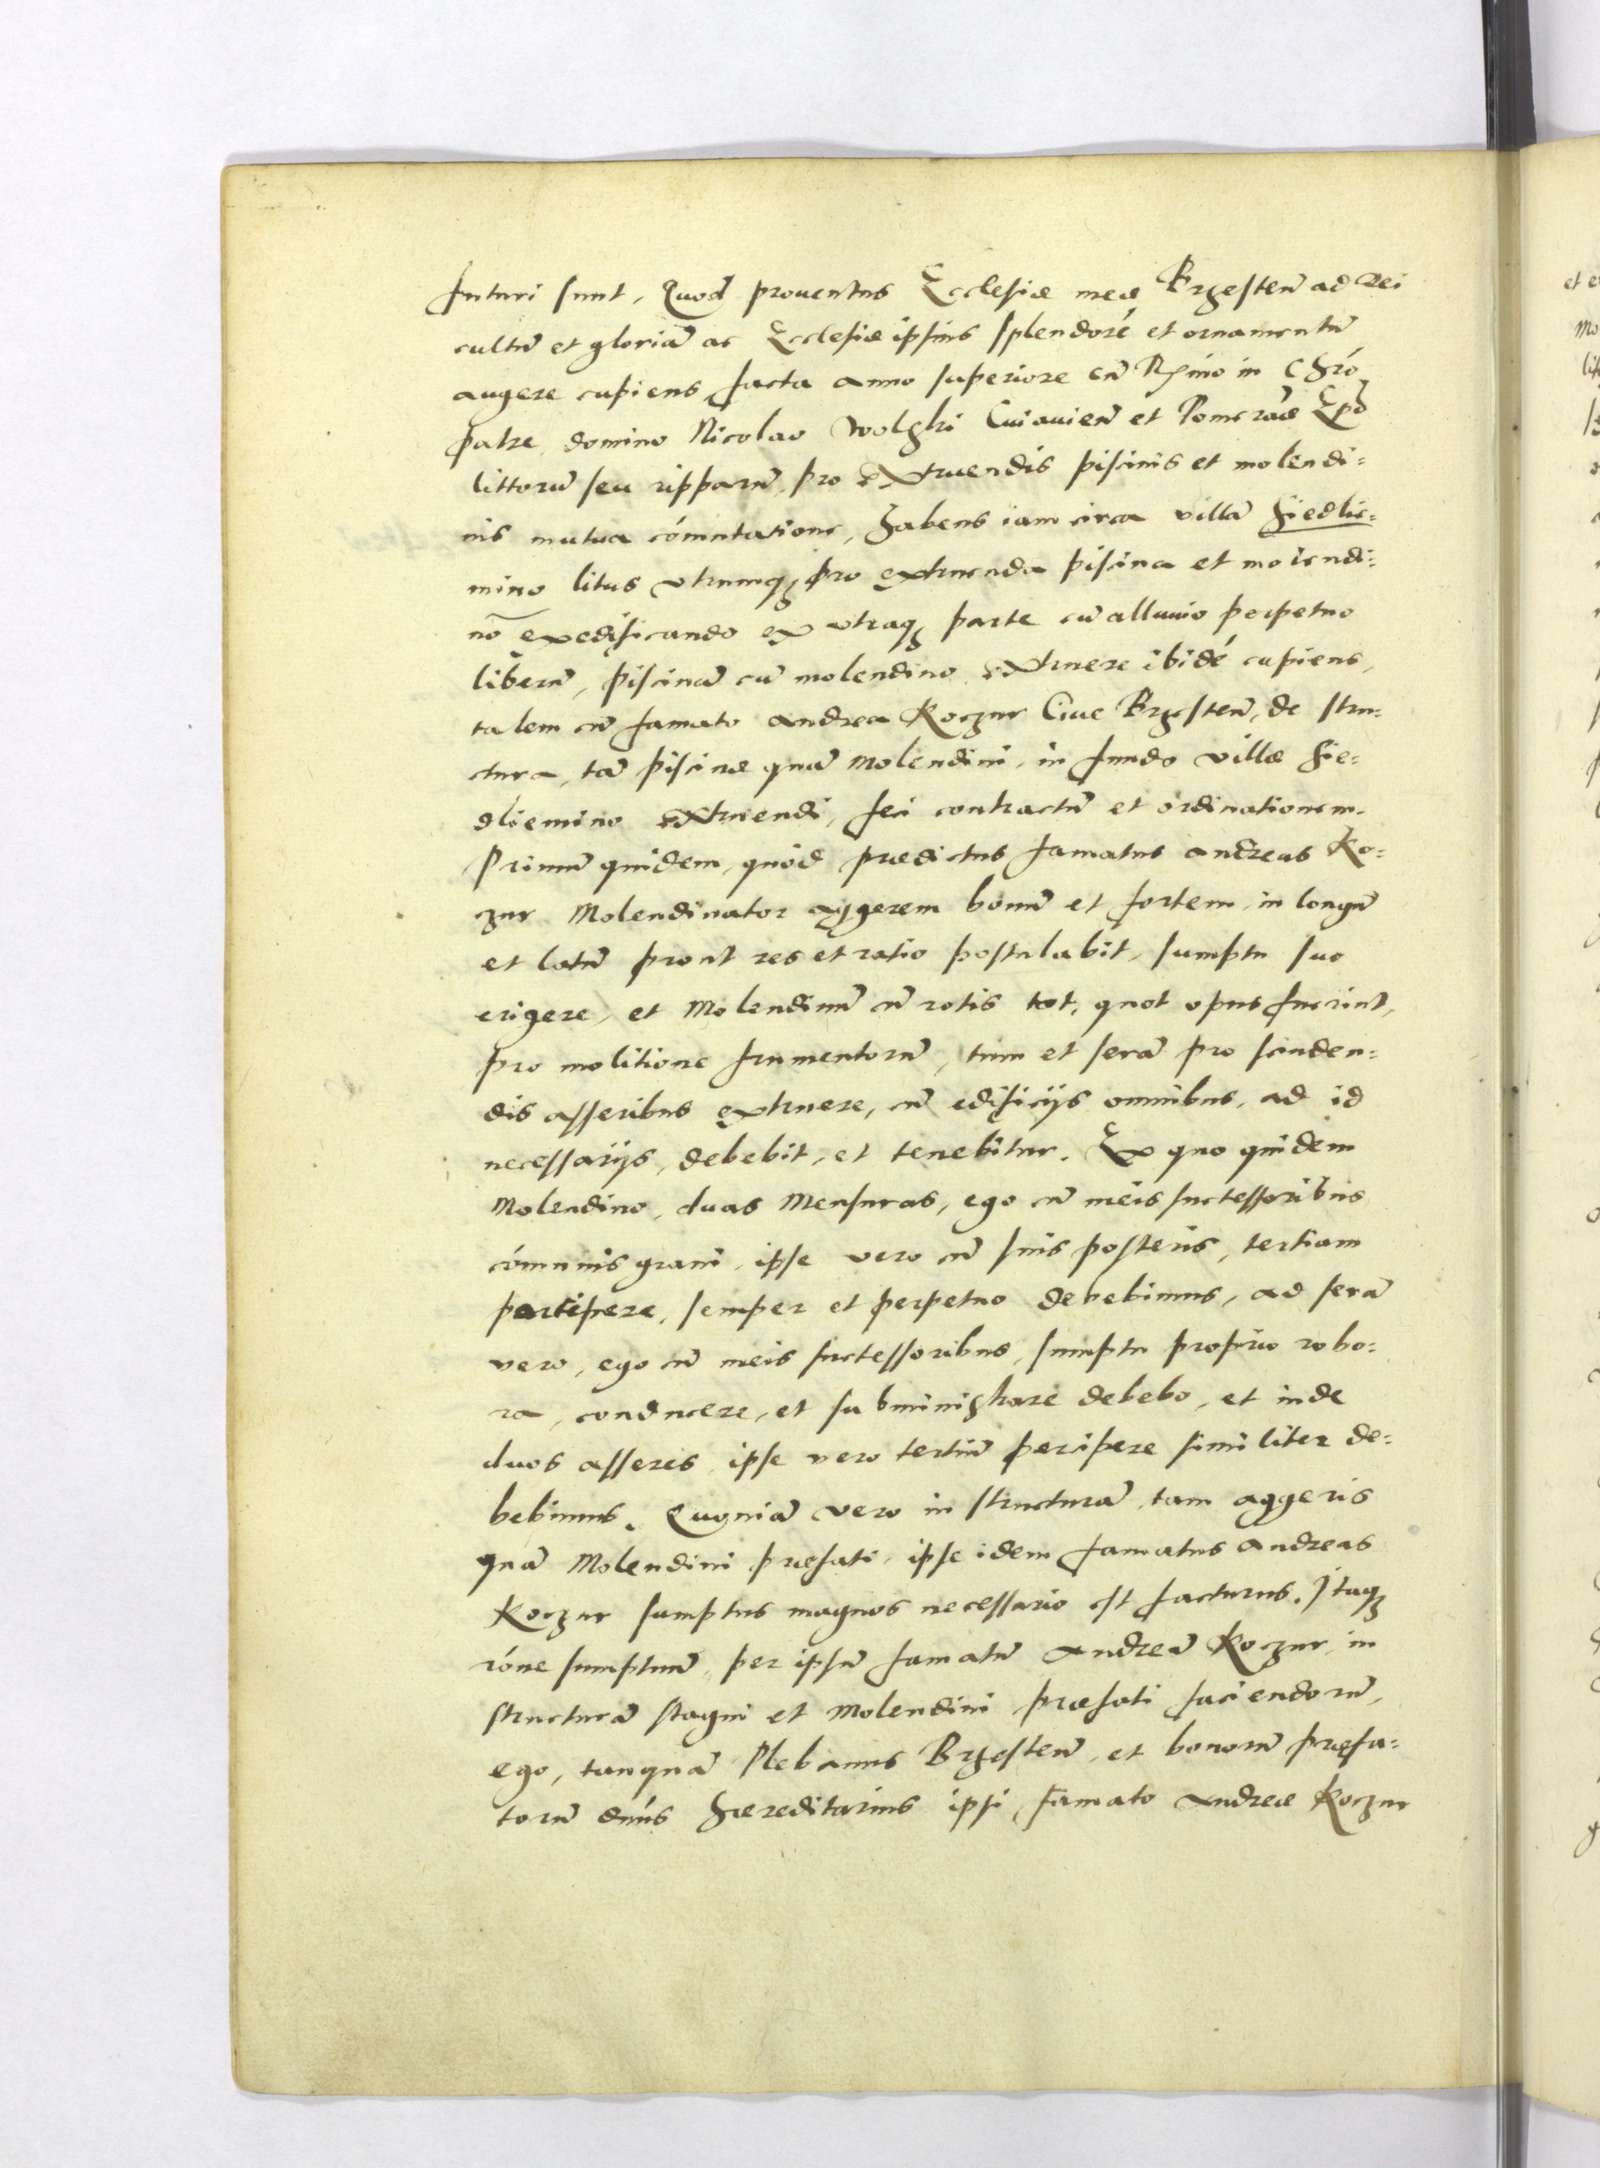 futuri sunt, Quod prouentus Ecclesiæ meæ Brzesteñ ad Dei
cultū et gloriā ac Ecclesiæ ipsius splendorē et ornamentū
augere cupiens, facta anno superiore cū Rx̄mo in Chr̄o
patre domino Nicolao Wolski Cuiauieñ et Pomeraæ Ep̄o
littorū seu ripparū, pro extruendis piscinis et molendi=
nis mutua cōmutatione, habens iam circa villā Siedlie=
mino litus vtrumq3 pro extruenda piscina et molendi=
no exedificando ex vtraq3 parte cū alluuio perpetuo
liberū, piscinā cū molendino extruere ibidē cupiens,
talem cū famato Andrea Koczur Ciue Brzesteñ, de stru=
ctura, tā piscinæ quā Molendini, in fundo villæ Sie=
dliemino extruendi, feci contractū et ordinationem.
Primū quidem, quod prædictus famatus Andreas Ko=
czur Molendinator aggerem bonū et fortem, in longū
et latū prout res et ratio postulabit, sumptu suo
erigere, et Molendinū cū rotis tot, quot opus fuerint,
pro molitione frumentorū, tum et serā pro scinden=
dis asseribus extruere, cū edificijs omnibus, ad id
necessarijs, debebit, et tenebitur. Ex quo quidem
Molendino, duas Mensuras, ego cū meis successoribus
cōmunis grani, ipse vero cū suis posteris, tertiam
percipere, semper et perpetuo debebimus, ad serā
vero, ego cū meis successoribus, sumptu proprio robo=
ra, conducere, et subministrare debebo, et inde
duos asseres, ipse vero tertiū percipere similiter de=
bebimus. Quoniā vero in structurā, tam aggeris
quā Molendini præfati, ipse idem famatus Andreas
Koczur sumptus magnos necessario est facturus. Itaq3
rōne sumptuū, per ipsū famatū Andreā Koczur, in
structurā stagni et Molendini præfati faciendorū,
ego, tanquā Plebanus Brzesteñ, et bonorū præfa=
torū dn̄us hæreditarius ipsi famato Andreæ Koczur